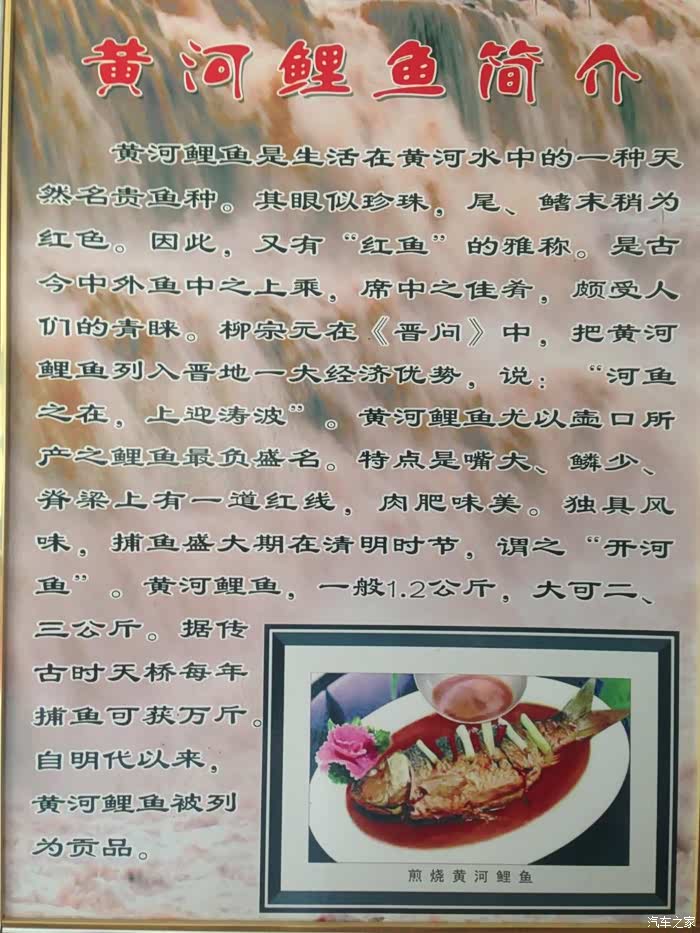 黄河鲤鱼简介
黄河鲤鱼是生活在黄河水中的一种天
然名贵鱼种。其眼似珍珠，尾、鳍末稍为
红色。因此，又有“红鱼”的雅称。是古
今中外鱼中之上乘，席中之佳肴，颇受人
们的青睐。柳宗元在《晋问》中，把黄河
鲤鱼列入晋地一大经济优势，说：“河鱼
之在，上迎涛波”。黄河鲤鱼尤以壶口所
产之鲤鱼最负盛名。特点是嘴大、鳞少、
脊梁上有一道红线，肉肥味美。独具风
味，捕鱼盛大期在清明时节，谓之“开河
鱼”。黄河鲤鱼，一般1.2公斤，大可二、
三公斤。据传
古时天桥每年
捕鱼可获万斤。
自明代以来，
黄河鲤鱼被列
为贡品。
煎烧黄河鲤鱼
汽车之家